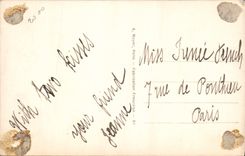 With two kisses
your friend
Jeanne
Miss Irenée
7 rue de Ponthieu
Paris